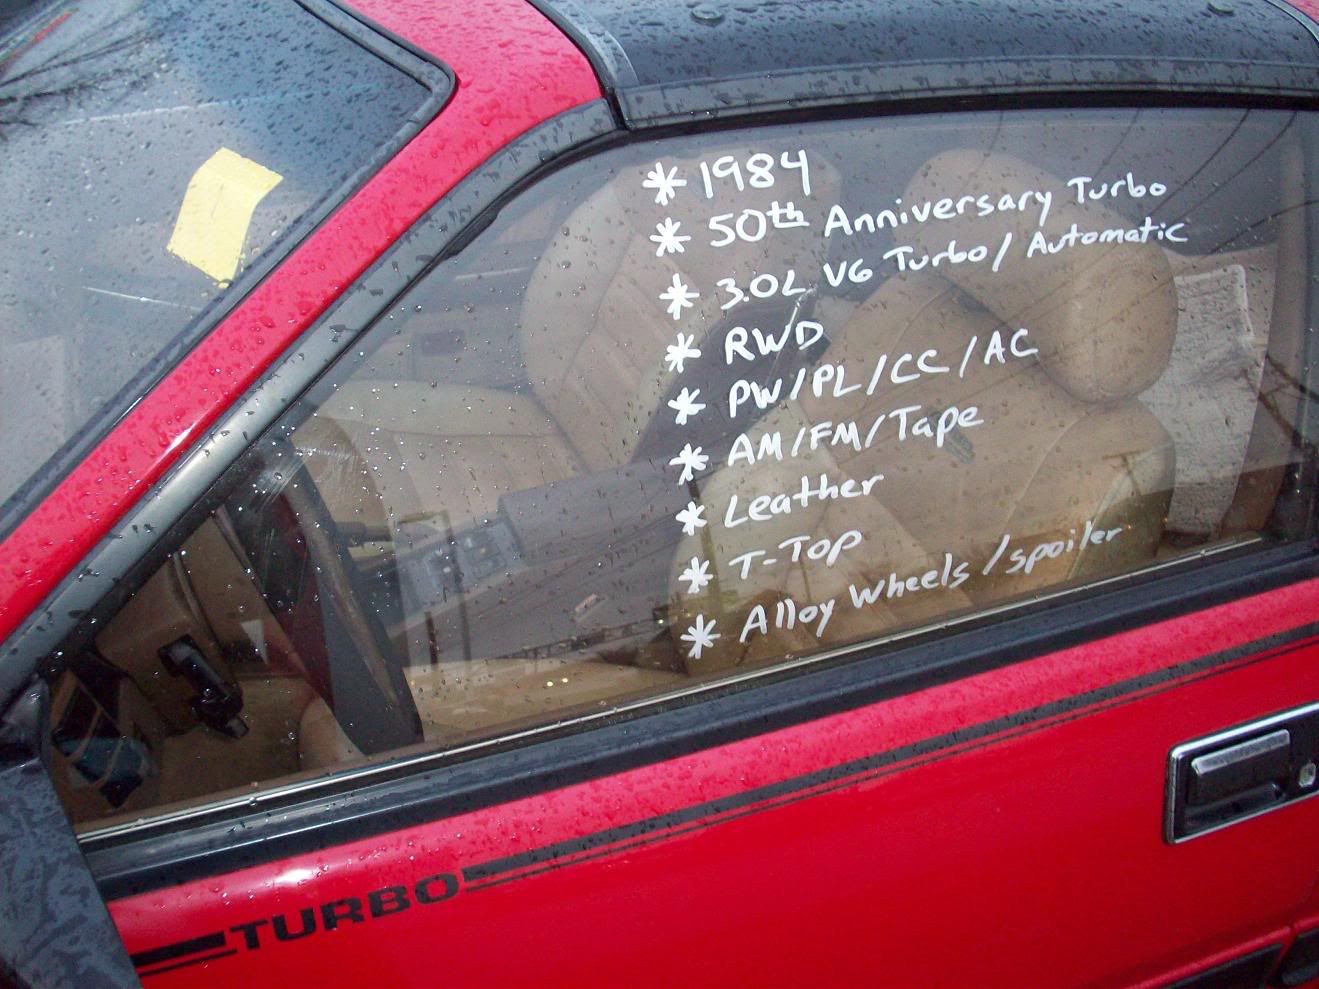 * 1984
* 50th Anniversary Turbo
* 3.0L V6 Turbo / Automatic
* RWD
* PW/PL/CC/AC
* AM/FM/Tape
* Leather
* T-Top
* Alloy Wheels / spoiler
TURBO